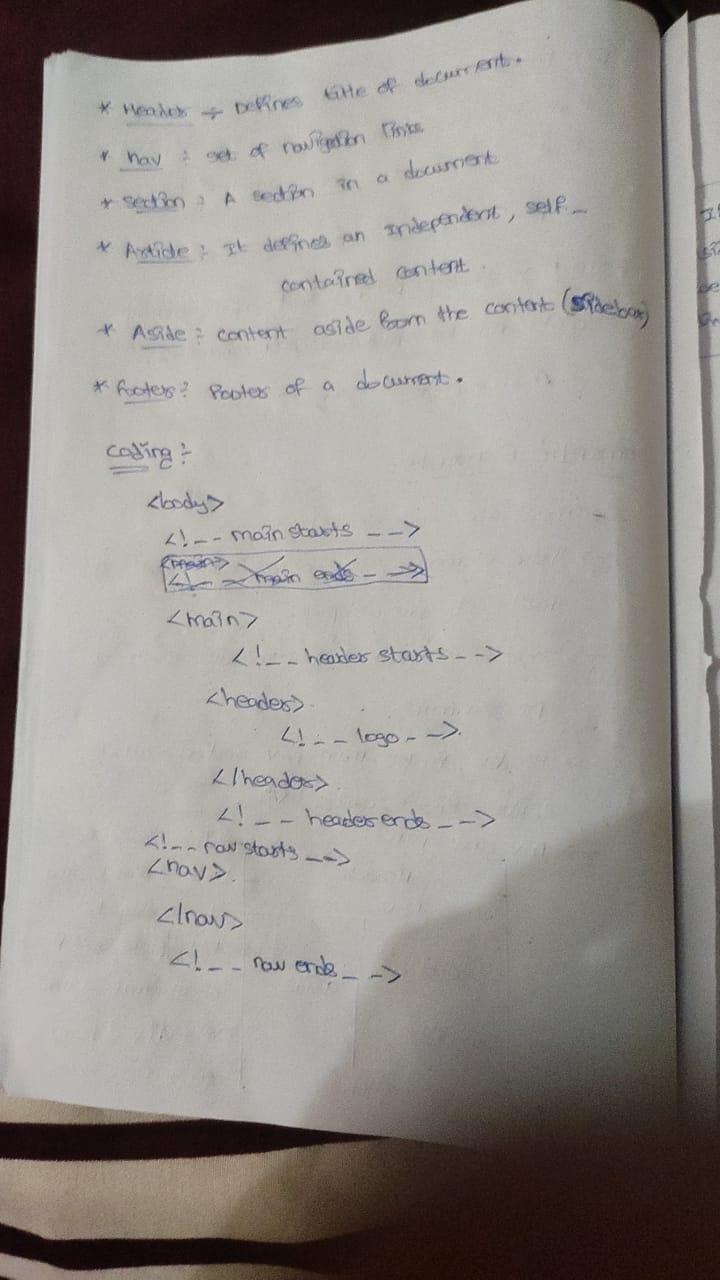 * Header ÷ Defines title of document.
* nav : set of navigation links
* section : A section in a document
* Article : It defines an independent, self-
contained content.
* Aside : content aside from the content (sidebar)
* footer : footer of a document.
coding :-
<body>
<!-- main starts -->
<main>
<!-- main ends -->
<main>
<!-- header starts -->
<header>
<!-- logo -->
</header>
<!-- header ends -->
<!-- nav starts -->
<nav>
</nav>
<!-- nav ends -->